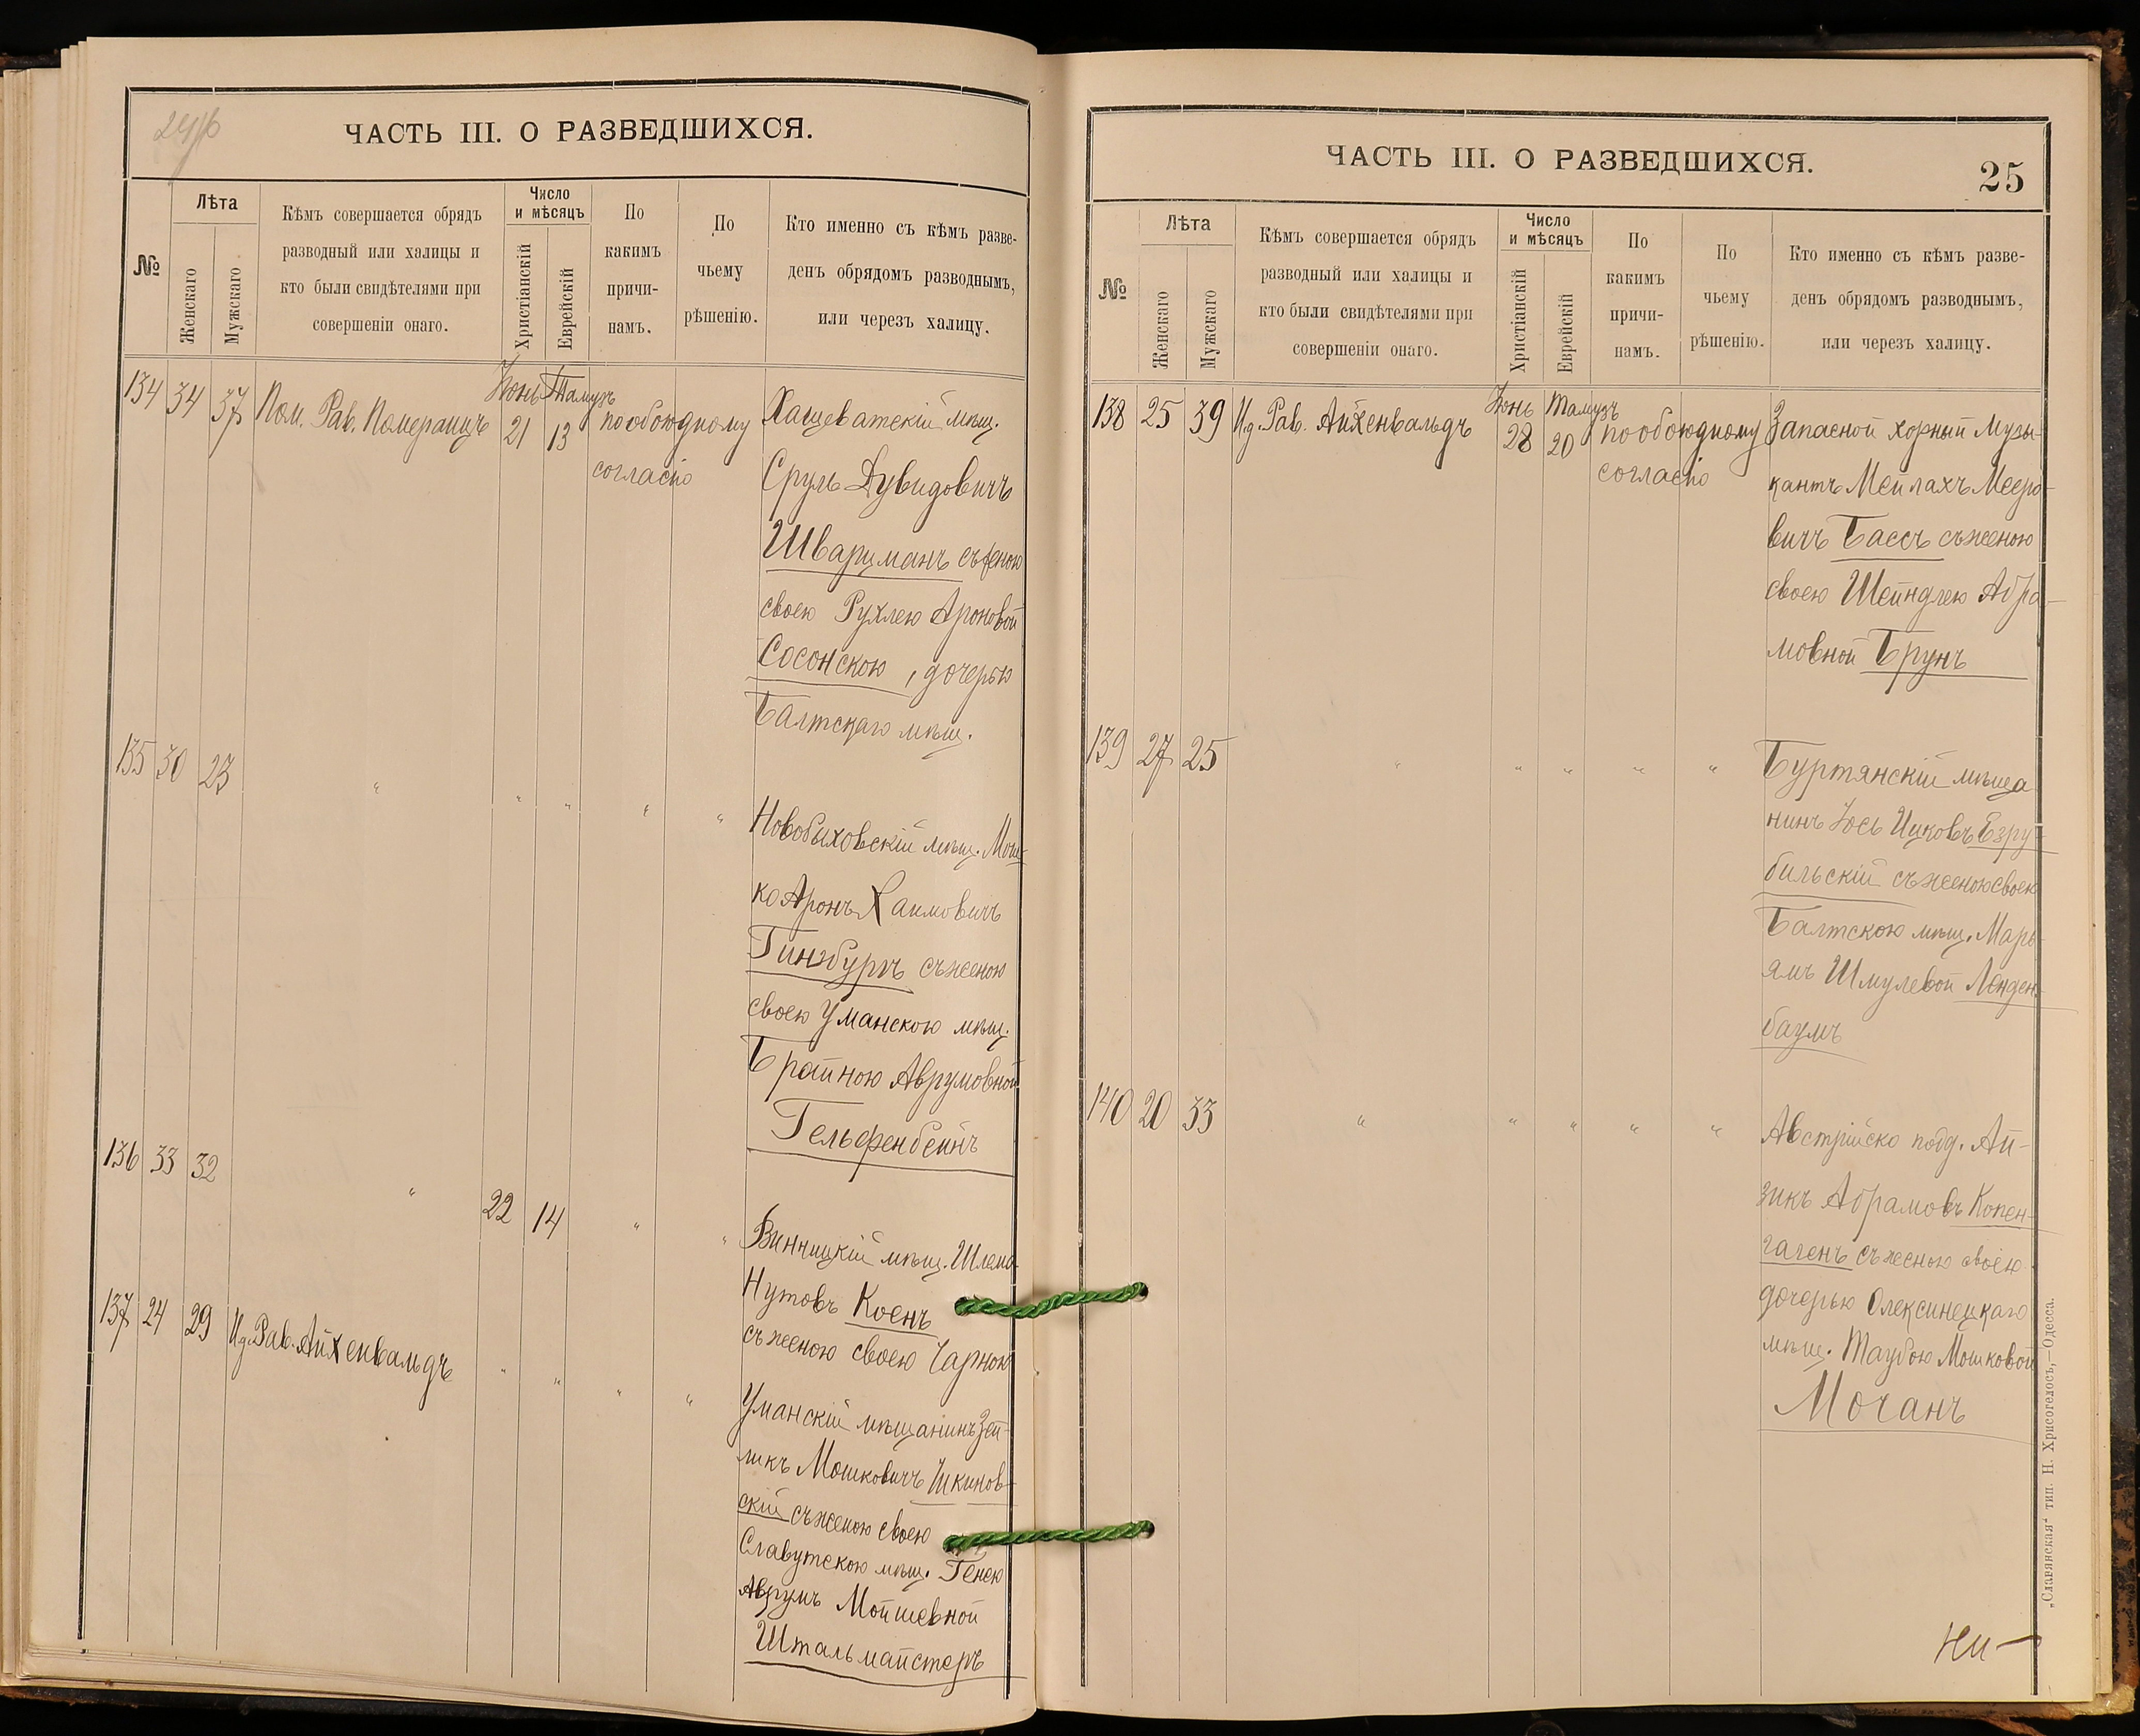 24об
ЧАСТЬ III. О РАЗВЕДШИХСЯ.
№
Лѣта
Женскаго
Мужскаго
Кѣмъ совершается обрядъ
разводный или халицы и
кто были свидѣтелями при
совершеніи онаго.
Число
и мѣсяцъ
Христіанскій
Еврейскій
По
какимъ
причи-
намъ.
По
чьему
рѣшенію.
Кто именно съ кѣмъ разве-
денъ обрядомъ разводнымъ,
или черезъ халицу.
134 34 37 Пом. Рав. Померанцъ Іюнь 21 Тамузъ 13 по обоюдному
согласію
Хащеватскій мѣщ.
Сруль Дувидовичъ
Шварцманъ съ женою
своею Рухлею Ароновой
Сосонскою, дочерью
Балтскаго мѣщ.
135 30 23 " " " " "
Новобыховскій мѣщ. Мош-
ко Аронъ Хаимовичъ
Гинзбургъ съ женою
своею Уманскою мѣщ.
Брайною Аврумовной
Гельфенбейнъ
136 33 32 " 22 14 " "
Винницкій мѣщ. Шлема
Нутовъ Коенъ
съ женою своею Чарною
137 24 29 И.д. Рав. Айхенвальдъ " " " "
Уманскій мѣщанинъ Зей-
ликъ Мошковичъ Шкинов-
скій съ женою своею
Славутскою мѣщ. Генею
Аврумъ Мойшевной
Штальмайстеръ
ЧАСТЬ III. О РАЗВЕДШИХСЯ.
25
№
Лѣта
Женскаго
Мужскаго
Кѣмъ совершается обрядъ
разводный или халицы и
кто были свидѣтелями при
совершеніи онаго.
Число
и мѣсяцъ
Христіанскій
Еврейскій
По
какимъ
причи-
намъ.
По
чьему
рѣшенію.
Кто именно съ кѣмъ разве-
денъ обрядомъ разводнымъ,
или черезъ халицу.
138 25 39 И.д. Рав. Айхенвальдъ Іюнь 28 Тамузъ 20 по обоюдному
согласію
Запасной хорный Музы-
кантъ Мейлахъ Мееро-
вичъ Бассъ съ женою
своею Шейндлею Абра-
мовной Брунъ
139 27 25 " " " " "
Буртянскій мѣща
нинъ Іось Ицковъ Езру-
бильскій съ женою своею
Балтскою мѣщ. Марь-
ямъ Шмулевой Ленден-
баумъ
140 20 33 " " " " "
Австрійско подд. Ай-
зикъ Абрамовъ Копен-
гагенъ съ женою своею
дочерью Олексинецкаго
мѣщ. Таубою Мошковой
Мочанъ
„Славянская“ тип. Н. Хрисогелосъ,—Одесса.